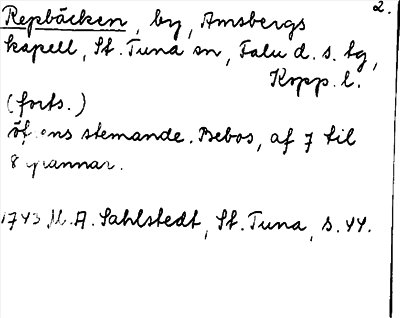 2.
Repbäcken, by, Amsbergs
kapell, St. Tuna sn, Falu d. s. tg,
Kopp. l.
(forts.)
stemande. Bebos, af 7 til
8 grannar.
1743 M. A. Sahlstedt, St. Tuna, s. 44.